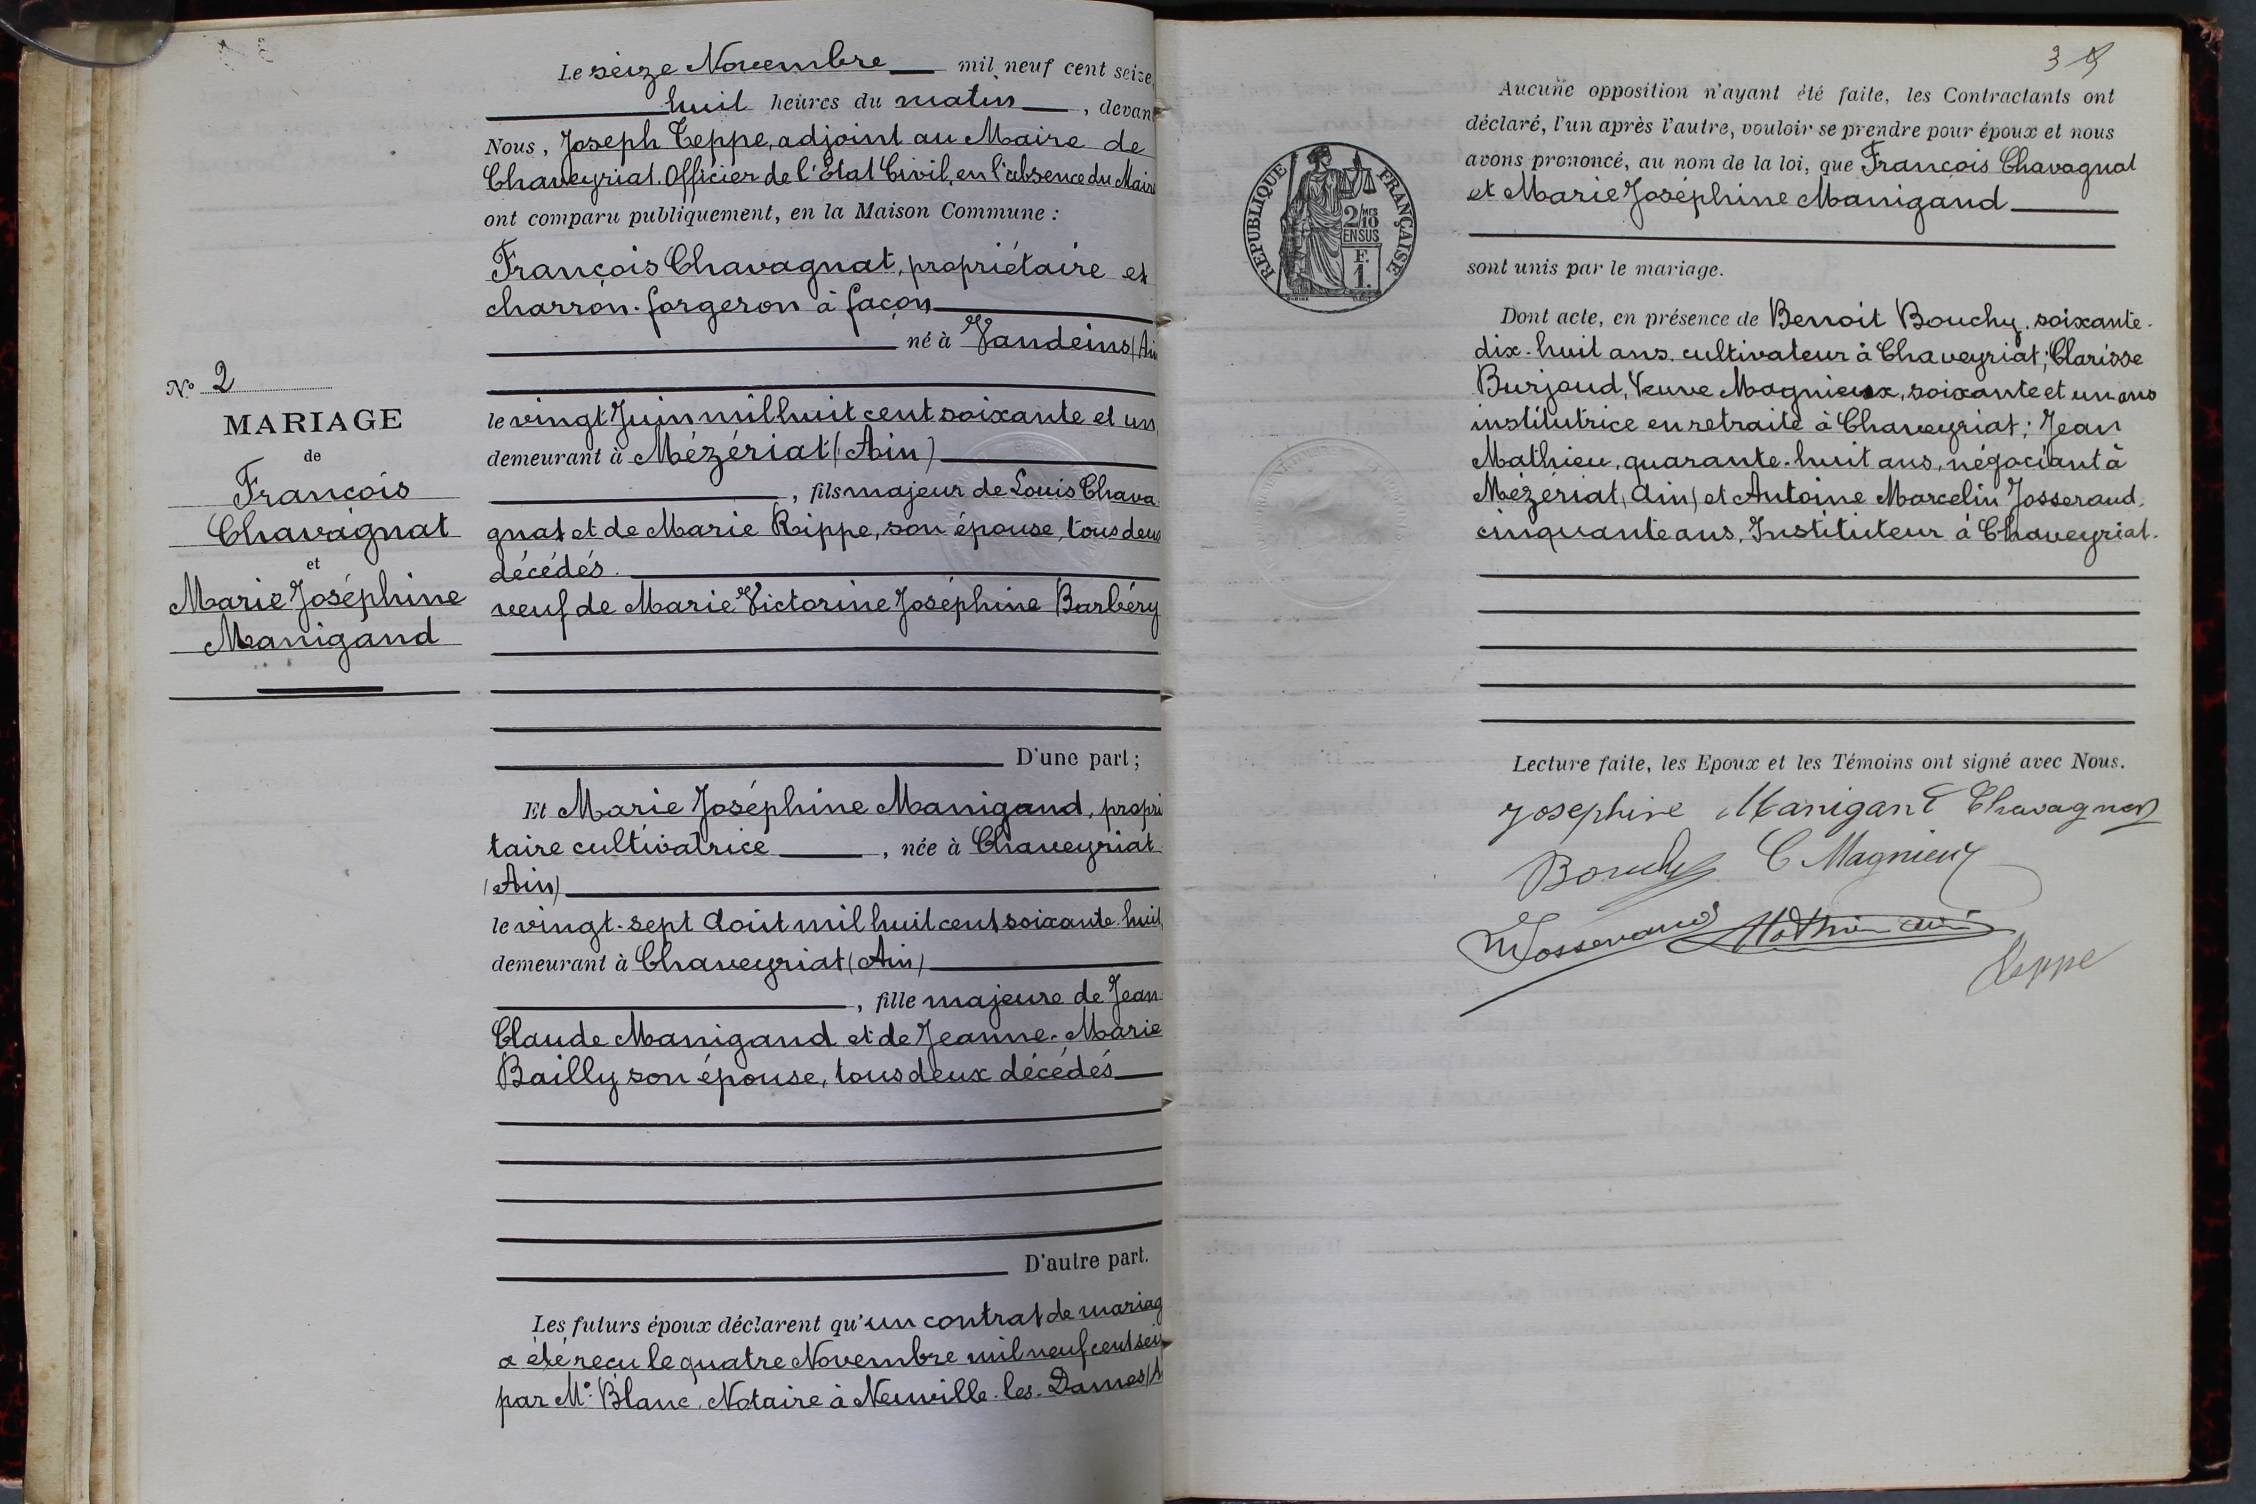 Le seize Novembre mil neuf cent seize,
huit heures du matin, devan
Nous, Joseph Teppe, adjoint au Maire de
Chaveyriat. Officier de l'Etat Civil, en l'absence du Maire
ont comparu publiquement, en la Maison Commune :
François Chavagnat, propriétaire et
charron-forgeron à façon
né à Vandeins (Ain
le vingt Juin mil huit cent soixante et un,
demeurant à Mézériat (Ain)
, fils majeur de Louis Chava
gnat et de Marie Rippe, son épouse, tous deux
décédés.
veuf de Marie Victorine Joséphine Barbéry
D'une part ;
No 2
MARIAGE
de
François
Chavagnat
et
Marie Joséphine
Manigand
Et Marie Joséphine Manigand, propri
taire cultivatrice, née à Chaveyriat
(Ain)
le vingt-sept Août mil huit cent soixante-huit,
demeurant à Chaveyriat (Ain)
, fille majeure de Jean
Claude Manigand et de Jeanne-Marie
Bailly son épouse, tous deux décédés
D'autre part.
Les futurs époux déclarent qu'un contrat de mariag
a été reçu le quatre Novembre mil neuf cent seiz
par Me Blanc, Notaire à Neuville-les-Dames (A
3
Aucune opposition n'ayant été faite, les Contractants ont
déclaré, l'un après l'autre, vouloir se prendre pour époux et nous
avons prononcé, au nom de la loi, que François Chavagnat
et Marie Joséphine Manigand
sont unis par le mariage.
REPUBLIQUE FRANÇAISE
2/10 MES
EN SUS
F.
1.
Dont acte, en présence de Benoit Bouchy, soixante-
dix-huit ans, cultivateur à Chaveyriat ; Clarisse
Burjoud, Veuve Magnieux, soixante et un ans
institutrice en retraite à Chaveyriat ; Jean
Mathieu, quarante-huit ans, négociant à
Mézériat (Ain) et Antoine Marcelin Josserand,
cinquante ans, Instituteur à Chaveyriat.
Lecture faite, les Epoux et les Témoins ont signé avec Nous.
Josephine Manigand Chavagnat
Bouchy C Magnieux
Josserand Mathieu
Teppe